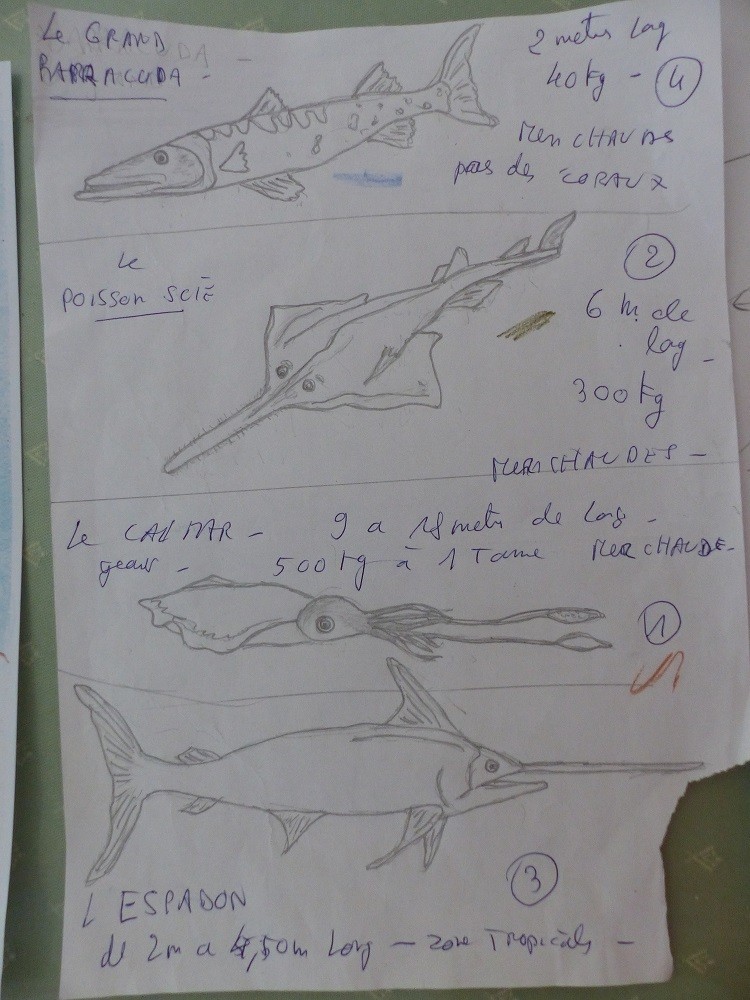 Le GRAND
BARRACUDA -
2 metres Log
40 kg - 4
Mers CHAUDES
pres des CORAUX
Le
POISSON SCIE
2
6 m. de
log -
300 kg
MERS CHAUDES -
Le CALMAR - 9 a 18 metres de Long -
geant - 500 kg à 1 Tonne MER CHAUDE -
1
3
L ESPADON
de 2m a 4,50m Long - zone Tropicales -